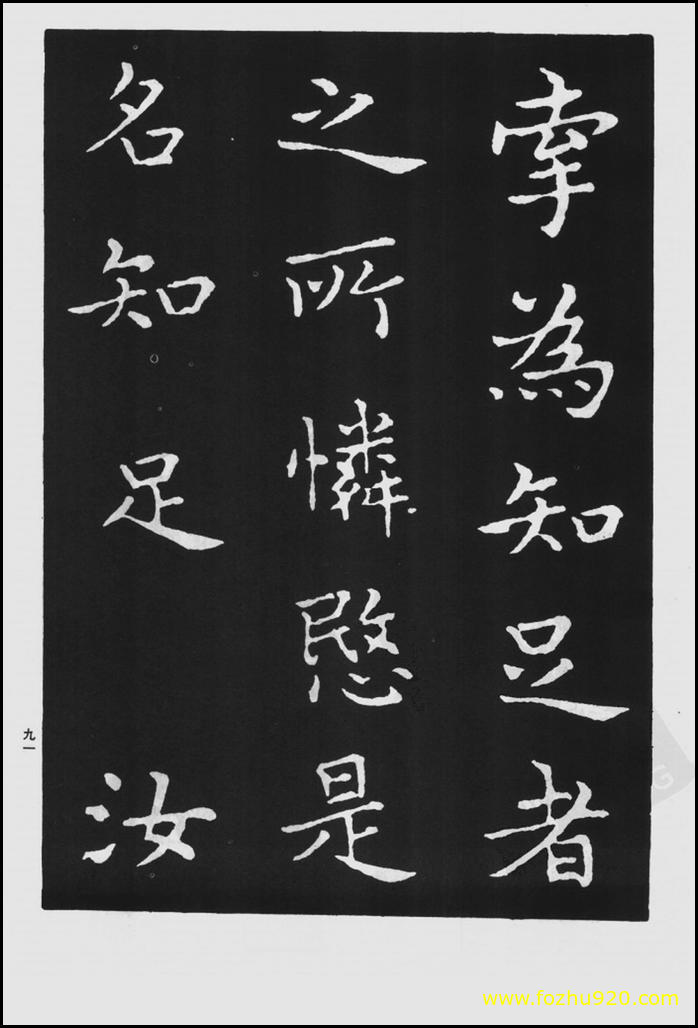 牽為知足者
之所憐愍是
名知足 汝
九一
www.fozhu920.com